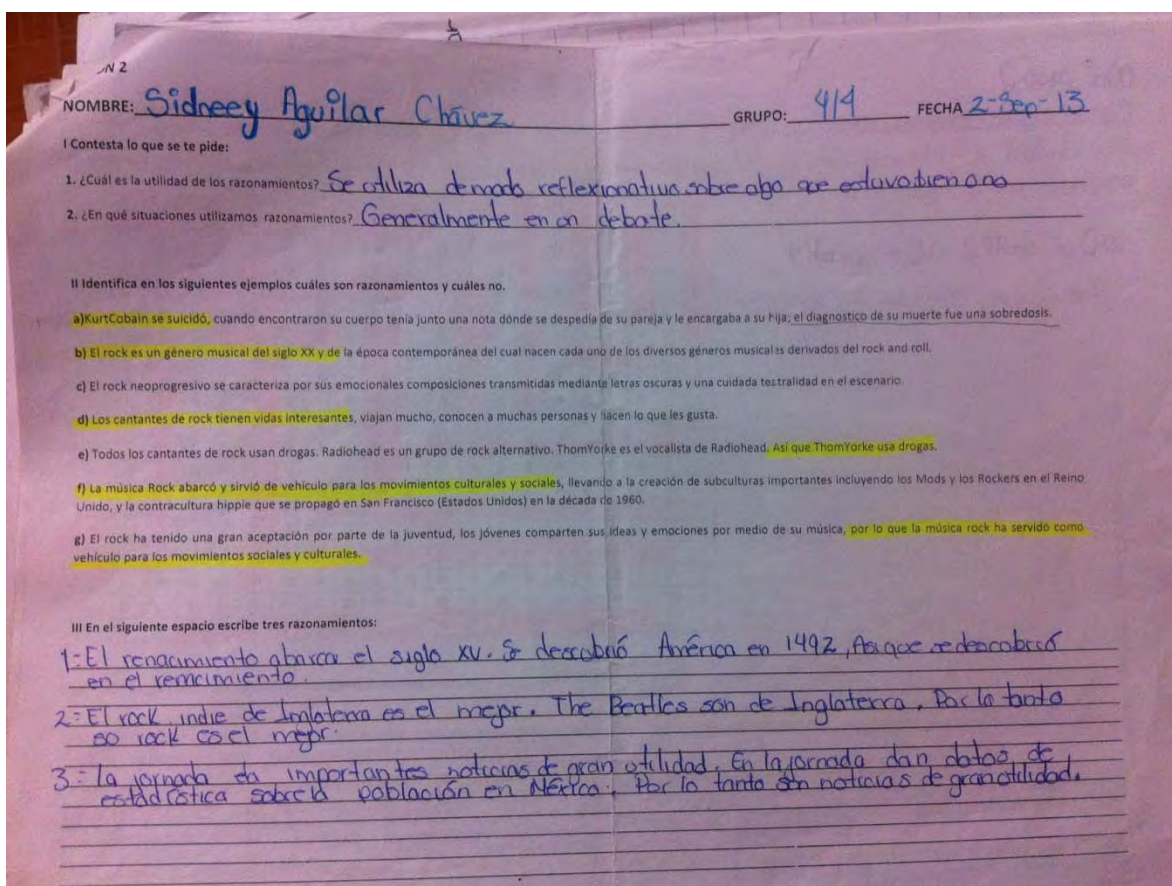 ÓN 2
NOMBRE: Sidneey Aguilar Chávez GRUPO: 414 FECHA 2-Sep-13
I Contesta lo que se te pide:
1. ¿Cuál es la utilidad de los razonamientos? Se utiliza de modo reflexionativo sobre algo que estuvo bien o no
2. ¿En qué situaciones utilizamos razonamientos? Generalmente en un debate.
II Identifica en los siguientes ejemplos cuáles son razonamientos y cuáles no.
a)KurtCobain se suicidó, cuando encontraron su cuerpo tenía junto una nota dónde se despedía de su pareja y le encargaba a su hija; el diagnostico de su muerte fue una sobredosis.
b) El rock es un género musical del siglo XX y de la época contemporánea del cual nacen cada uno de los diversos géneros musicales derivados del rock and roll.
c) El rock neoprogresivo se caracteriza por sus emocionales composiciones transmitidas mediante letras oscuras y una cuidada teatralidad en el escenario.
d) Los cantantes de rock tienen vidas interesantes, viajan mucho, conocen a muchas personas y hacen lo que les gusta.
e) Todos los cantantes de rock usan drogas. Radiohead es un grupo de rock alternativo. ThomYorke es el vocalista de Radiohead. Así que ThomYorke usa drogas.
f) La música Rock abarcó y sirvió de vehículo para los movimientos culturales y sociales, llevando a la creación de subculturas importantes incluyendo los Mods y los Rockers en el Reino
Unido, y la contracultura hippie que se propagó en San Francisco (Estados Unidos) en la década de 1960.
g) El rock ha tenido una gran aceptación por parte de la juventud, los jóvenes comparten sus ideas y emociones por medio de su música, por lo que la música rock ha servido como
vehículo para los movimientos sociales y culturales.
III En el siguiente espacio escribe tres razonamientos:
1-El renacimiento abarca el siglo XV. Se descubrió América en 1492, Asi que se descubrió
en el remcimiento.
2-El rock indie de Inglaterra es el mejor. The Beatles son de Inglaterra. Por lo tanto
so rock es el mejor.
3-la jornada da importantes noticias de gran utilidad. En la jornada dan datos de
estadística sobre la población en México. Por lo tanto son noticias de gran utilidad.